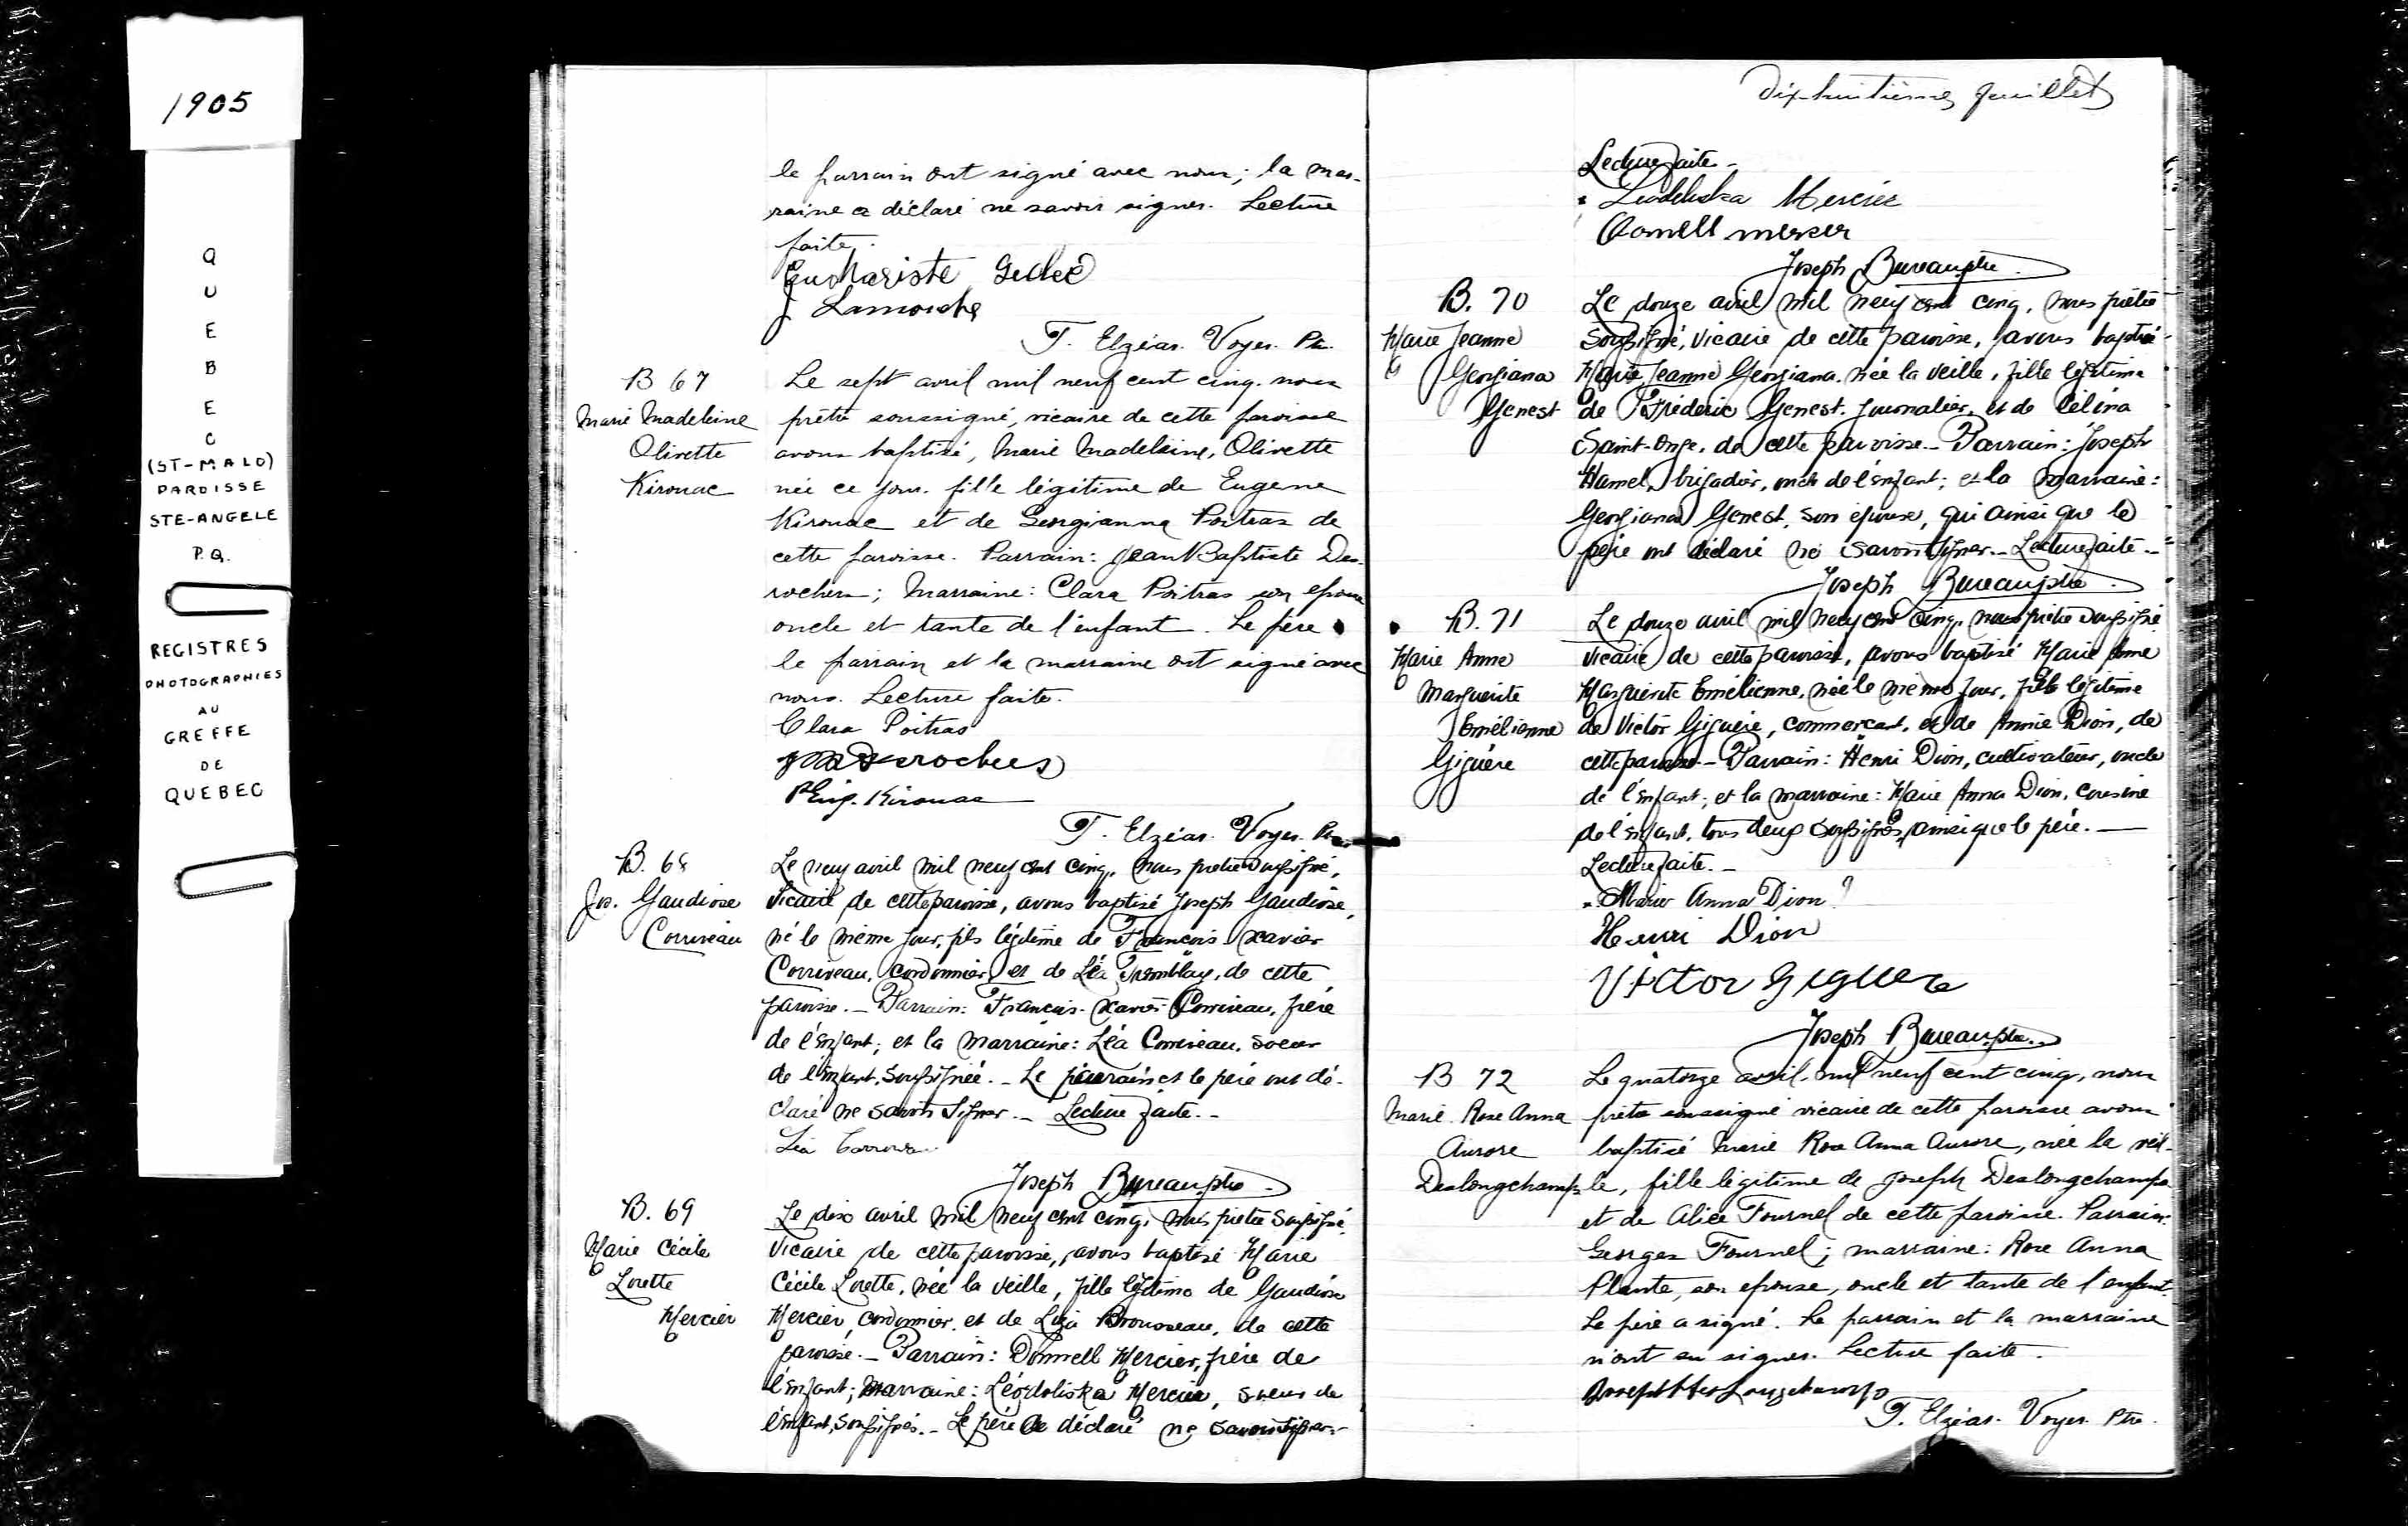 1905
QUEBEC
(ST-MALO)
PAROISSE
STE-ANGELE
P.Q.
REGISTRES
PHOTOGRAPHIES
AU
GREFFE
DE
QUEBEC
le parrain ont signé avec nous; la mar-
raine a déclaré ne savoir signer. Lecture
faite.
Euchariste
J. Lamorche
T. Elzéar Voyer Ptr.
B 67
Marie Madeleine
Olivette
Kirouac
Le sept avril mil neuf cent cinq. nous
prêtre soussigné, vicaire de cette paroisse
avons baptisé, Marie Madeleine, Olivette
née ce jour. fille légitime de Eugene
Kirouac et de Georgianna Poitras de
cette paroisse. Parrain: Jean Baptiste Des-
rochers; Marraine: Clara Poitras son épouse
oncle et tante de l'enfant. Le père
le parrain et la marraine ont signé avec
nous. Lecture faite.
Clara Poitras
J B Desrochers
Eug. Kirouac
T. Elzéar Voyer Ptr
B. 68
Jos. Gaudiose
Corriveau
Le neuf avril mil neuf cent cinq, nous prêtre soussigné,
Vicaire de cette paroisse, avons baptisé Joseph Gaudiose,
né le même jour, fils légitime de François Xavier
Corriveau, cordonnier, et de Léa Tremblay, de cette
paroisse. _ Parrain: François-Xavier Corriveau, frère
de l'enfant; et la marraine: Léa Corriveau, soeur
de l'enfant, soussignée. _ Le parrain et le père ont dé-
claré ne savoir signer. _ Lecture faite. _
Léa Corriveau
Joseph Bureau, ptre
B. 69
Marie Cécile
Lorette
Mercier
Le dix avril mil neuf cent cinq, nous prêtre soussigné,
Vicaire de cette paroisse, avons baptisé Marie
Cécile Lorette, née la veille, fille légitime de Gaudiose
Mercier, cordonnier, et de Brousseau, de cette
paroisse. _ Parrain: Donnell Mercier, frère de
l'enfant; marraine: Léodoliska Mercier, soeur de
l'enfant, soussignés. _ Le père a déclaré ne savoir signer. _
Dix-huitième feuillet
Lecture faite _
Mercier
Joseph Bureau, ptre
B. 70
Marie Jeanne
Georgiana
Genest
Le douze avril mil neuf cent cinq, nous prêtre
soussigné, vicaire de cette paroisse, avons baptisé
Marie Jeanne Georgiana, née la veille, fille légitime
de Frédéric Genest, journalier, et de Célina
Saint-Onge, de cette paroisse. _ Parrain: Joseph
Hamel, brigadier, oncle de l'enfant; et la marraine:
Georgiana Genest, son épouse, qui ainsi que le
père ont déclaré ne savoir signer. _ Lecture faite. _
Joseph Bureau, ptre
B. 71
Marie Anne
Marguerite
Emélienne
Giguère
Le douze avril mil neuf cent cinq, nous prêtre soussigné
vicaire de cette paroisse, avons baptisé Marie Anne
Marguerite Emélienne, née le même jour, fille légitime
de Victor Giguère, commerçant, et de Annie Dion, de
cette paroisse _ Parrain: Henri Dion, cultivateur, oncle
de l'enfant; et la marraine: Marie Anna Dion, cousine
de l'enfant, tous deux soussignés, ainsi que le père. _
Lecture faite. _
Marie Anna Dion
Henri Dion
Victor Giguere
Joseph Bureau, ptre
B 72
Marie Rose Anna
Aurore
Deslongchamps
Le quatorze avril, mil neuf cent cinq, nous
prêtre soussigné vicaire de cette paroisse avons
baptisé Marie Rose Anna Aurore, née la veil-
le, fille légitime de Joseph Deslongchamps
et de Alice Fournel de cette paroisse. Parrain:
Georges Fournel; marraine: Rose Anna
Plante, son épouse, oncle et tante de l'enfant.
Le père a signé. Le parrain et la marraine
n'ont su signer. Lecture faite.
Joseph Des Longchamps
T. Elzéar Voyer Ptre.